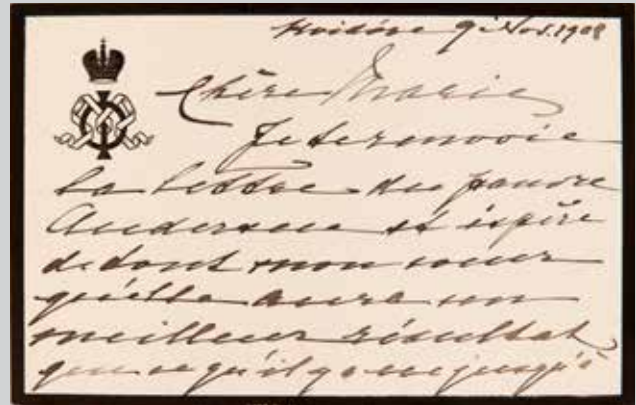 Hvidöre 9 Nov. 1908
Chère Marie
Je te renvoie
la lettre du pauvre
Andersen et espère
de tout mon coeur
qu'elle aura un
meilleur résultat
que ce qu'il y a eu jusqu'à